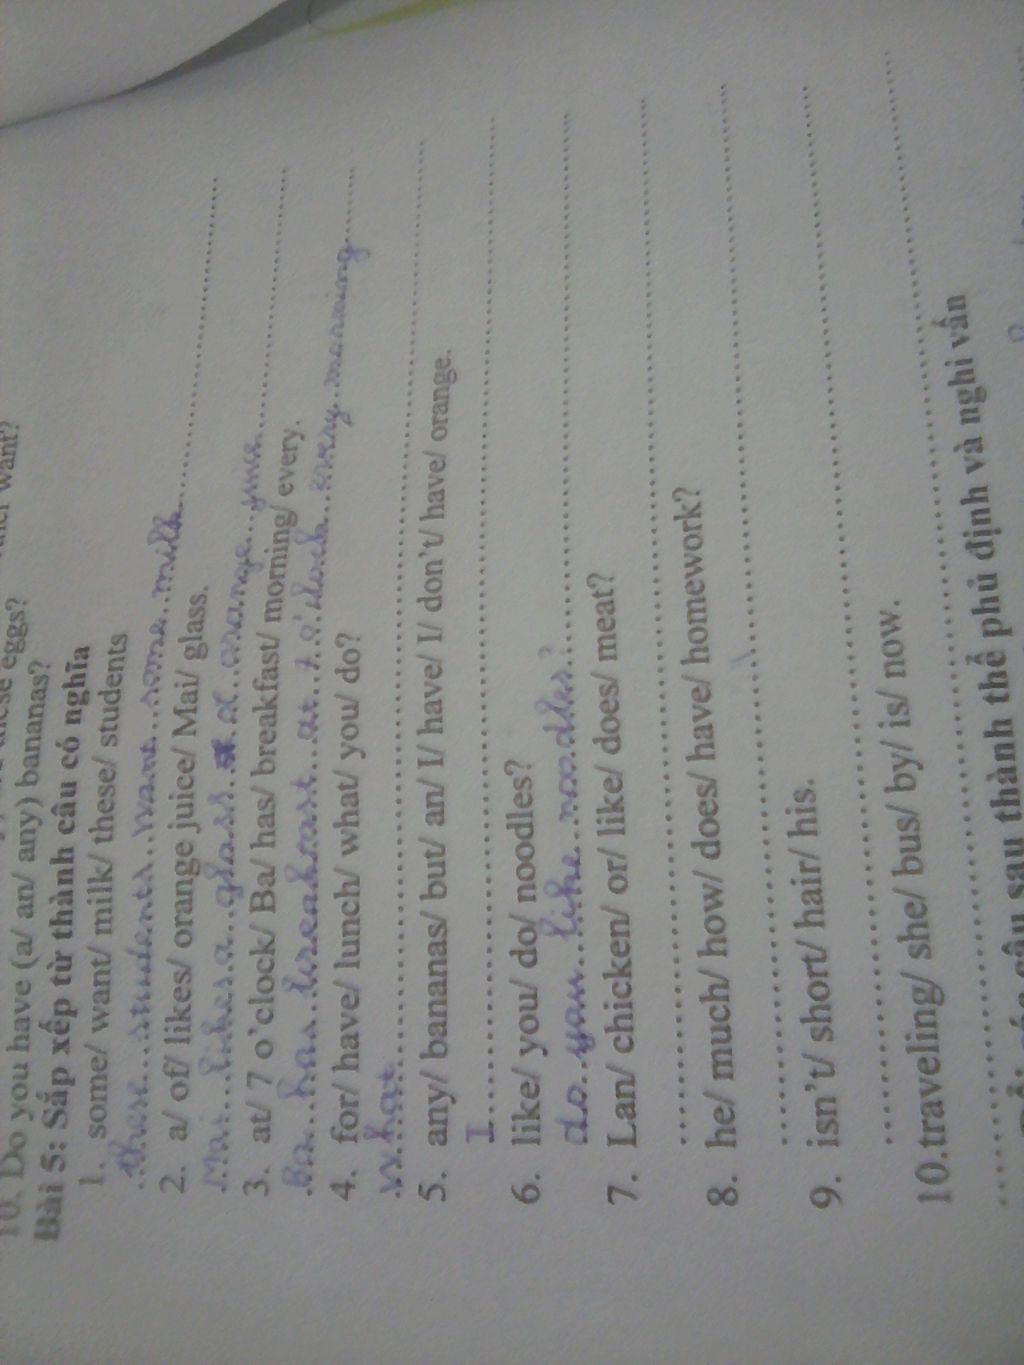 10. Do you have (a/ an/ any) bananas?
Bài 5: Sắp xếp từ thành câu có nghĩa
1. some/ want/ milk/ these/ students
these students want some milk
2. a/ of/ likes/ orange juice/ Mai/ glass.
Mai likes a glass of orange juice
3. at/ 7 o`clock/ Ba/ has/ breakfast/ morning/ every.
Ba has breakfast at 7 o'clock every morning
4. for/ have/ lunch/ what/ you/ do?
what
5. any/ bananas/ but/ an/ I/ have/ I/ don`t/ have/ orange.
I
6. like/ you/ do/ noodles?
do you like noodles?
7. Lan/ chicken/ or/ like/ does/ meat?
8. he/ much/ how/ does/ have/ homework?
9. isn't/ short/ hair/ his.
10.traveling/ she/ bus/ by/ is/ now.
câu sau thành thể phủ định và nghi vấn